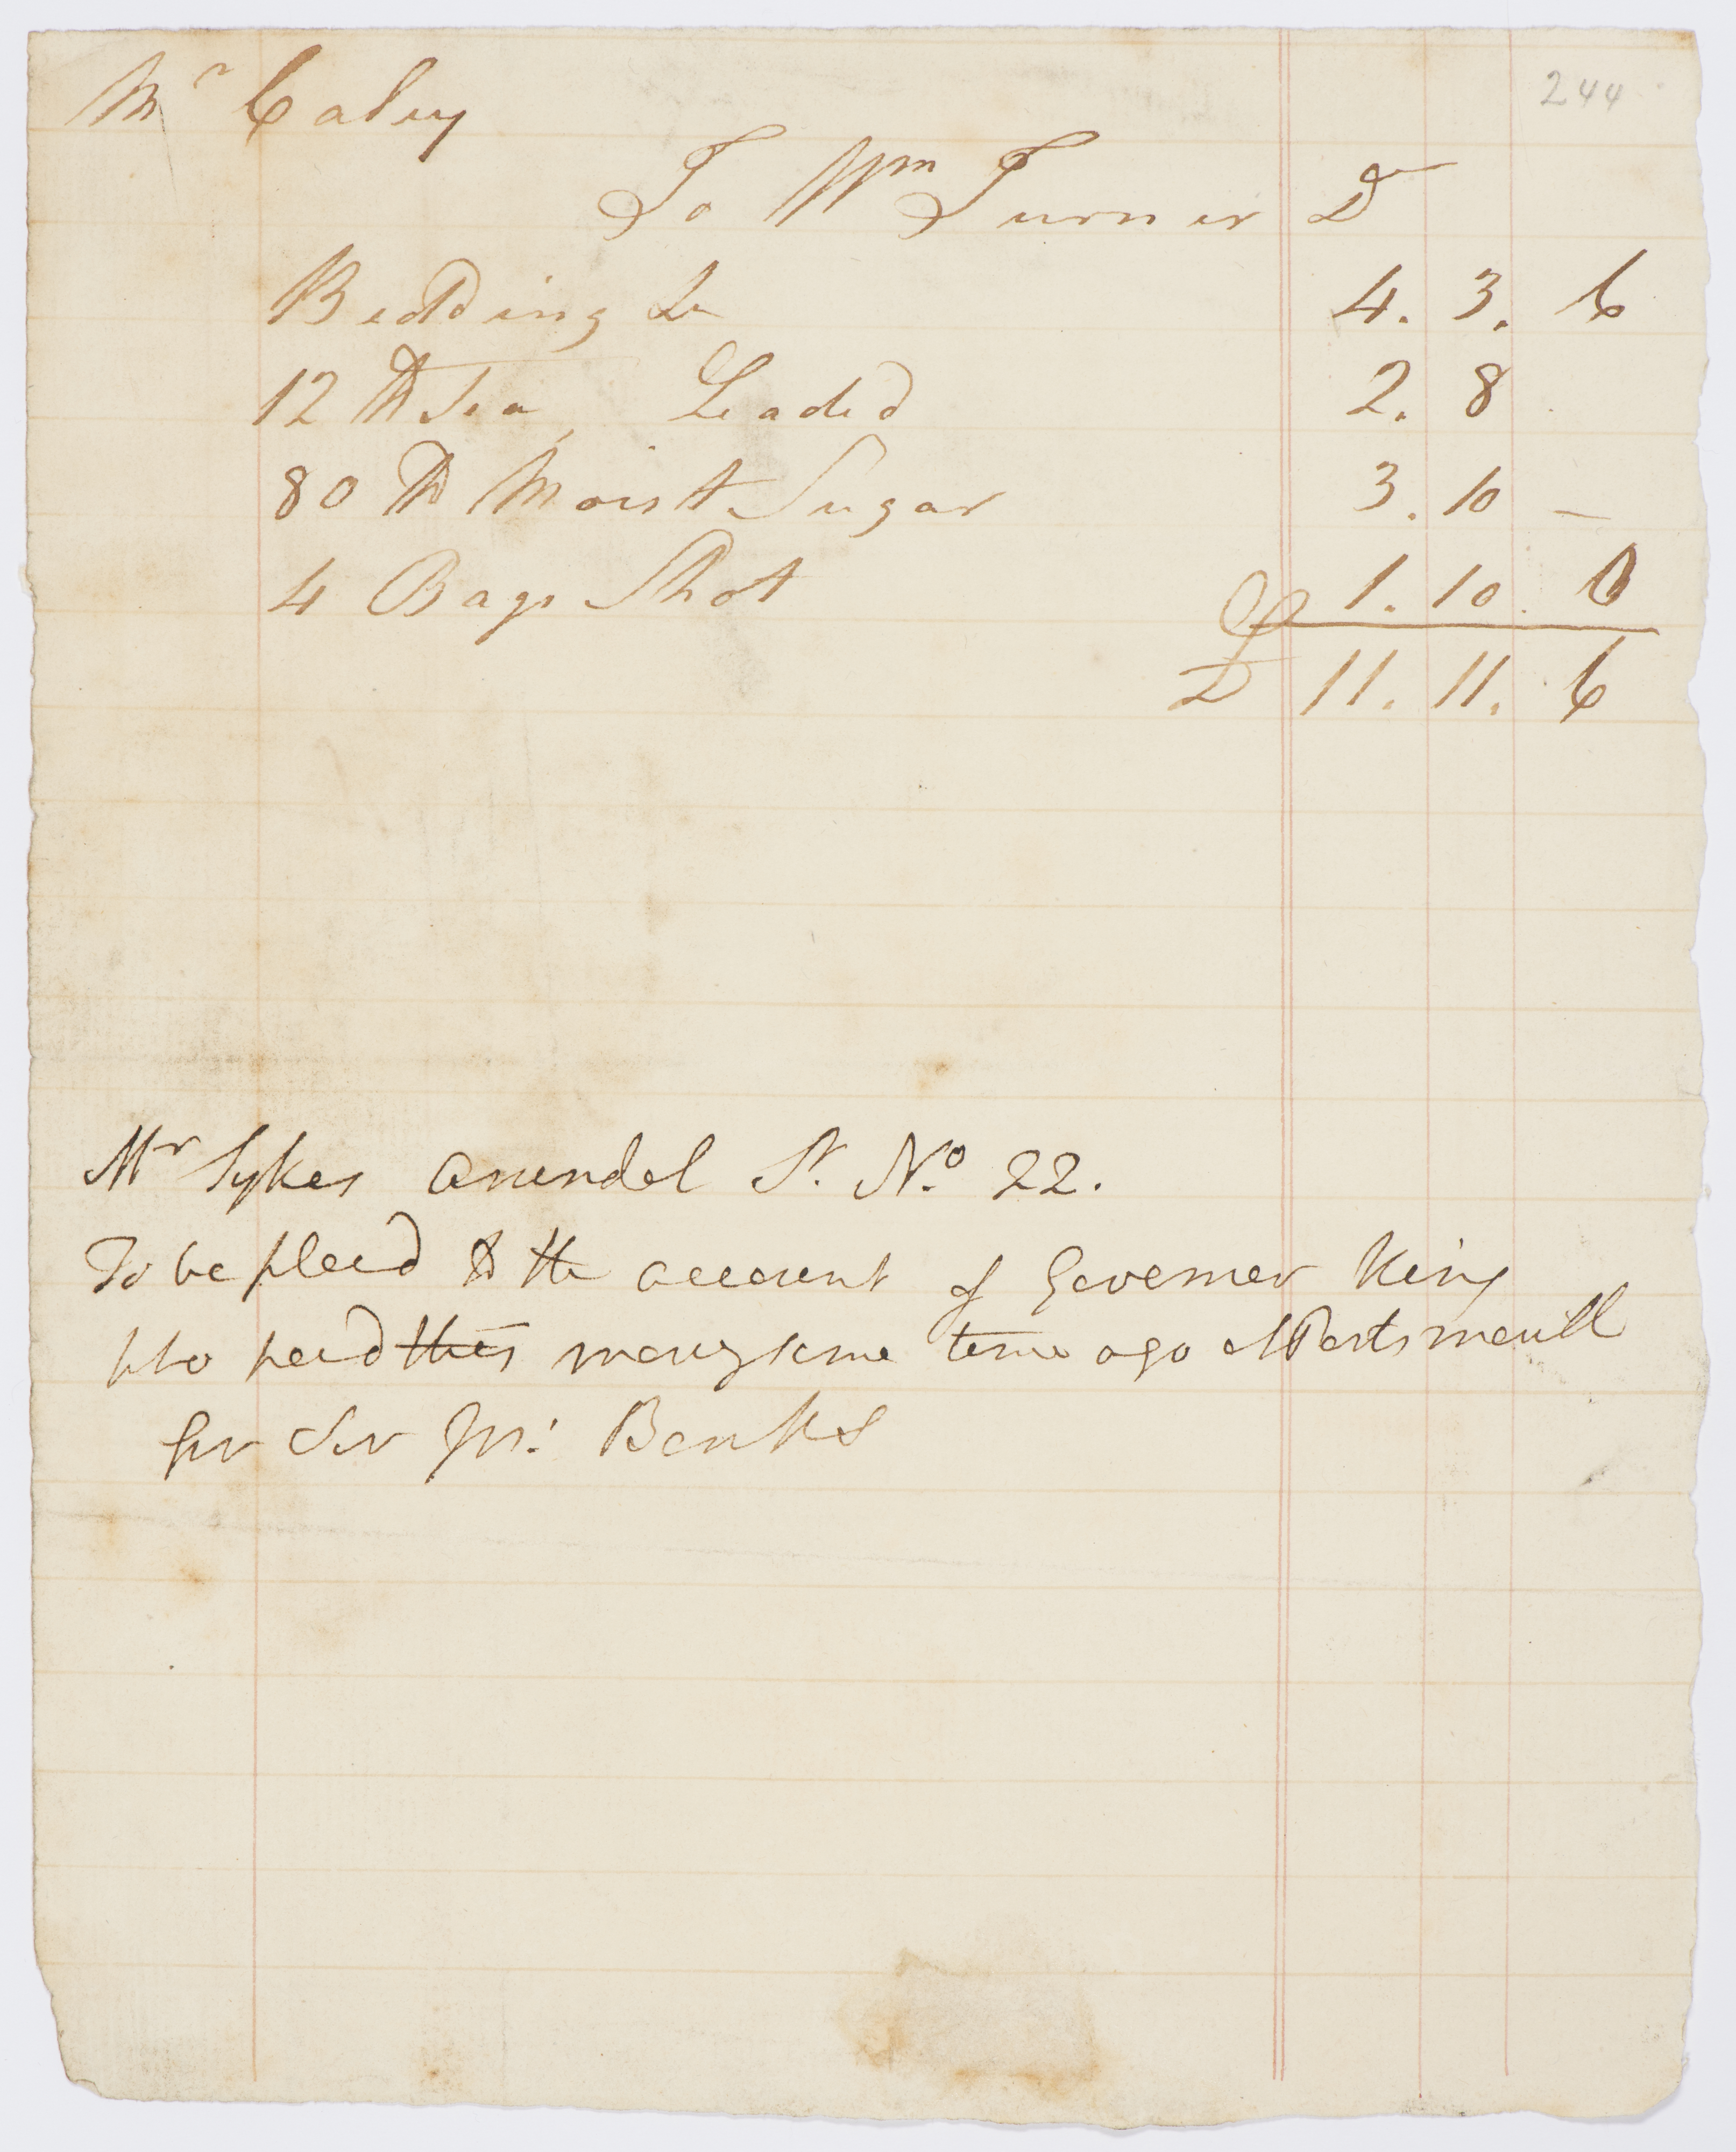 244
Mr Caley
To Wm Turner Dr
Bedding &c 4. 3. 6
12 lb Tea Leaded 2. 8
80 lb Moist Sugar 3. 10 —
4 Bags Shot 1. 10 0
£ 11. 11. 6
Mr Sykes Arundel St. No. 22.
To be placd to the account of Governer King
who paid this mony some time ago at Portsmouth
for Sir Jos: Banks